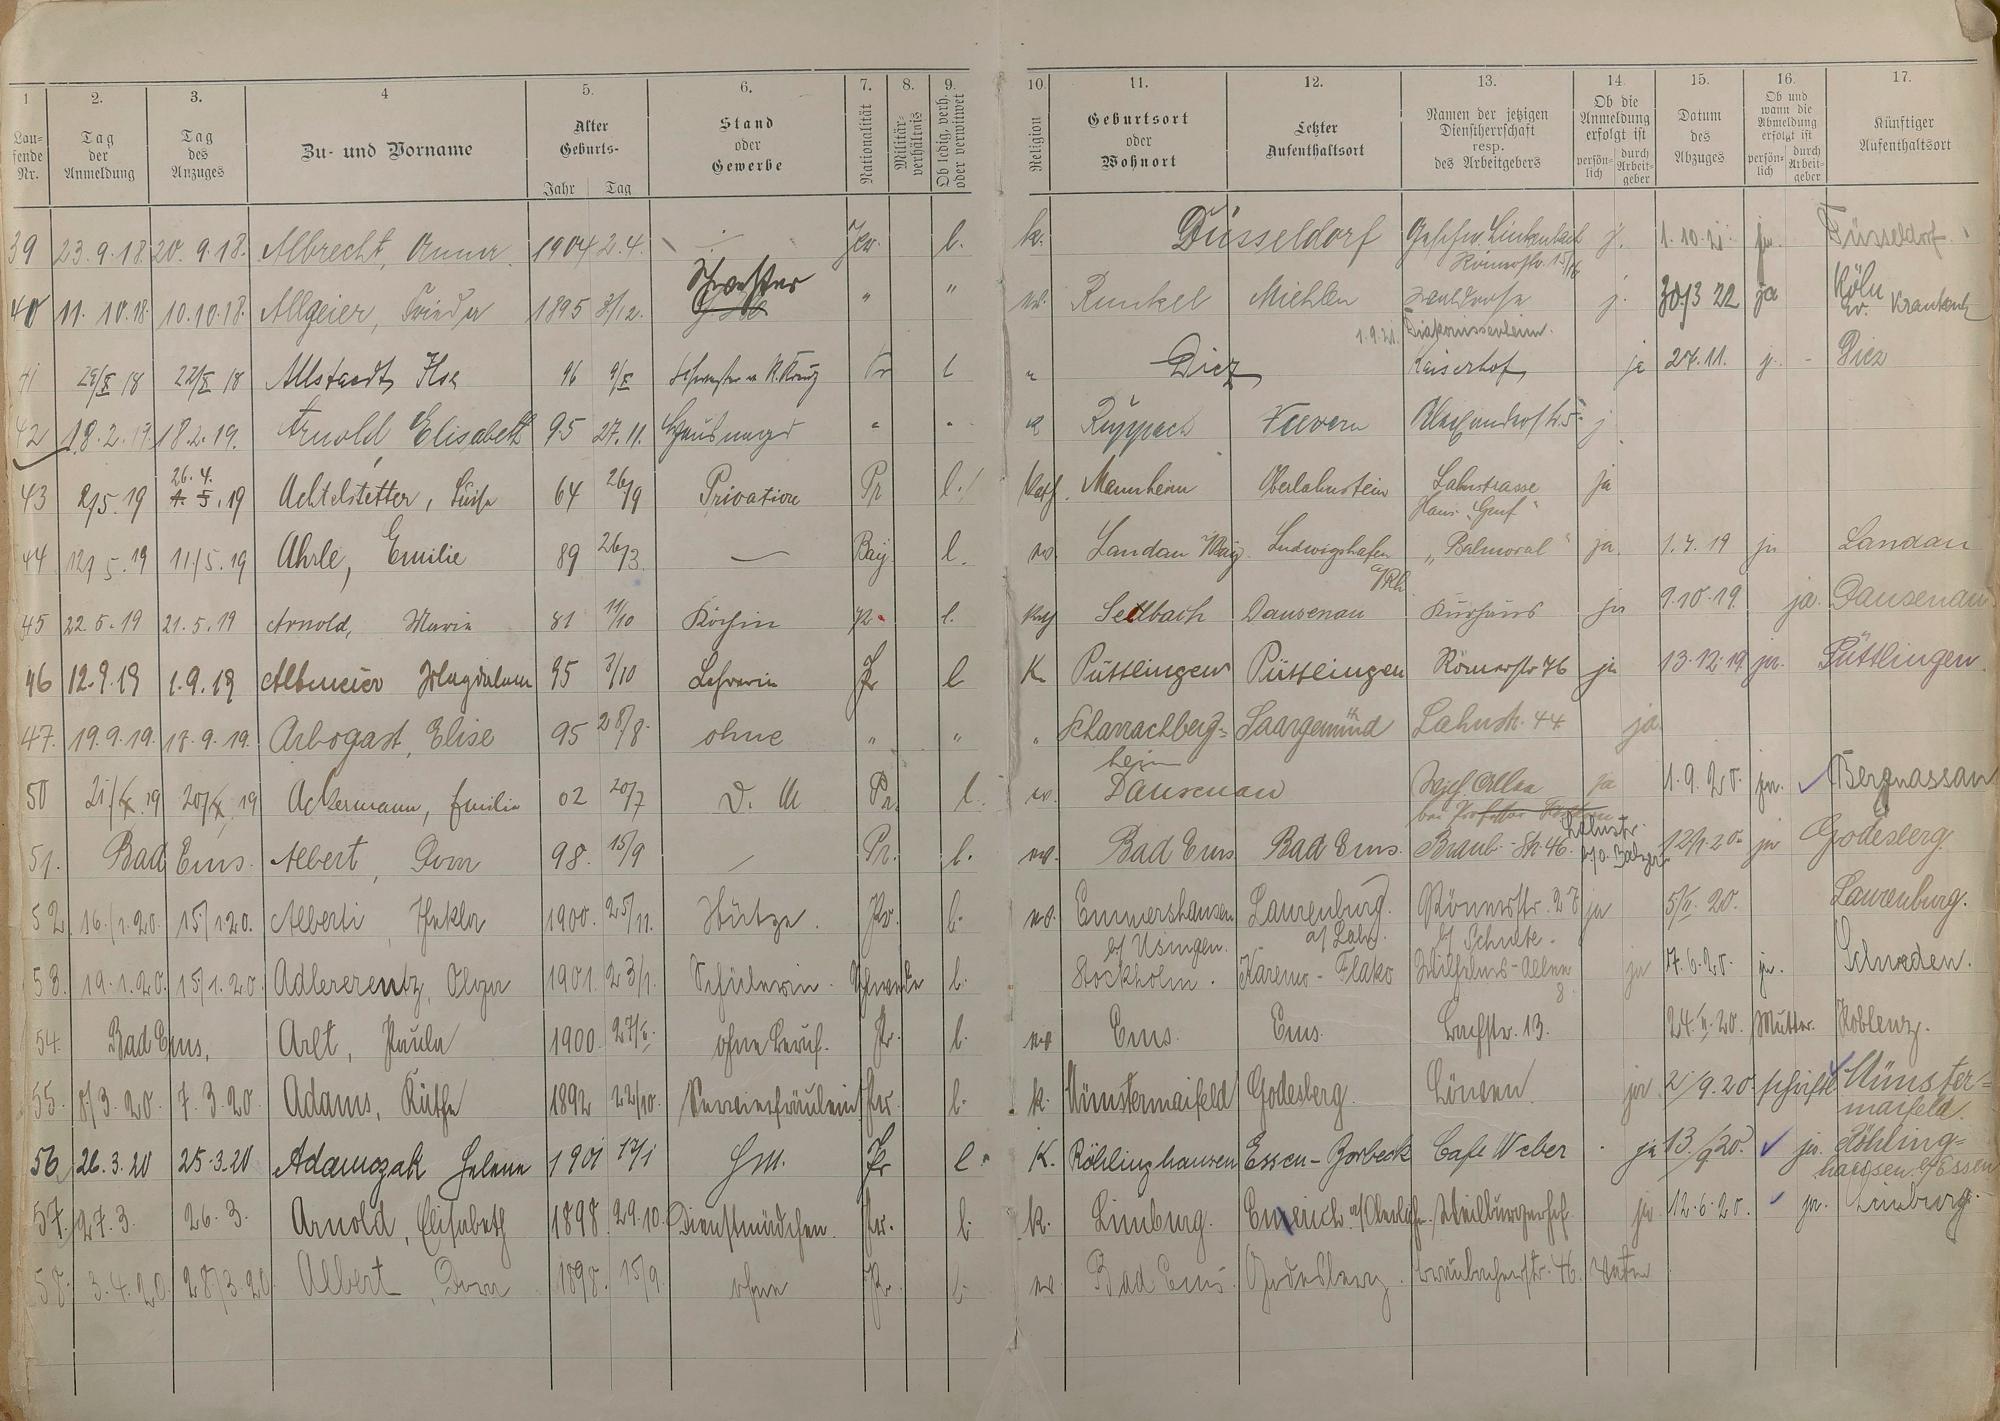 1 2. 3. 4 5. 6. 7. 8. 9. 10. 11. 12. 13. 14. 15. 16. 17.
Lau-
fende
Nr.
Tag
der
Anmeldung
Tag
des
Anzuges
Zu- und Vorname
Alter
Geburts-
Jahr Tag
Stand
oder
Gewerbe
Nationalität
Militär-
verhältnis
Ob ledig, verh.
oder verwitwet
Religion
Geburtsort
oder
Wohnort
Letzter
Aufenthaltsort
Namen der jetzigen
Dienstherrschaft
resp.
des Arbeitgebers
Ob die
Anmeldung
erfolgt ist
persön-
lich
durch
Arbeit-
geber
Datum
des
Abzuges
Ob und
wann die
Abmeldung
erfolgt ist
persön-
lich
durch
Arbeit-
geber
Künftiger
Aufenthaltsort
39 23.9.18. 20.9.18. Albrecht, Anna 1904 2.4. l. k. Düsseldorf j. Düsseldorf
Römerstr. 15/16
40 11.10.18. 10.10.18. Allgeier, Frieda 1895 3/12. Schwester " " Runkel Miehlen j. 30/3 22 ja Köln
Ev. Krankenh
1.9.21. Diakonissenheim.
41 18 22/X 18 Allstaedt, Ilse 96 9/X Schwester v. R. Kreuz Pr l " Diez Kaiserhof ja 27.11. j. - Diez
42 18.2.19. 18.2.19. Arnold Elisabeth 95 27.11. Hausmagd " " Ruppach j
26.4.
43 2/5.19 19 Achtelstetter, Luise 64 26/9 Privatiere Pr l. Kath. Mannheim Oberlahnstein Lahnstrasse ja
Haus "Genf"
44 12/5.19 11/5.19 Ahrle, Emilie 89 26/3 Bay l. Landau Ludwigshafen "Balmoral" ja. 1.7.19 ja Landau
a/Rh.
45 22.5.19 21.5.19 Arnold, Maria 81 11/10 Köchin l. Kath Dausenau Kurhaus ja 9.10.19. ja. Dausenau
46 12.9.19 1.9.19 Altmeier Magdalena 95 3/10 Lehrerin Pr l K. Püttlingen Püttlingen Römerstr 76 ja 13.12.19 ja. Püttlingen.
47. 19.9.19. 17.9.19. Arbogast, Elise 95 28/8. ohne " " " Scharrachberg= Saargemünd Lahnstr. 44 ja
heim
50 19 19 Ackermann, Emilie 02 20/7 D. M Pr. l. Dausenau ja 1.9.20. ja. Bergnassau
51. Bad Ems. Albert, Dora 98. 15/9 Pr. l. Bad Ems Bad Ems. Braub. Str. 46. ja Godesberg.
52 16./1.20. 15/1 20. Alberti, Thekla 1900. 25/11. Stütze. Pr. l. Emmershausen Laurenburg. Römerstr. ja 5/II. 20. Laurenburg.
b/ Usingen. a/ Lahn. b/ Schulte.
53. 19.1.20. 15/1.20. Adlererentz, Olga 1901. 23/1. Schülerin. Schwede l. Stockholm. Wilhelms-Allee ja 17.6.20. ja. Schweden.
8.
54. Bad Ems, Arlt, Paula 1900. ohne Beruf. Pr. l. Ems. Ems. 13. 24. 20. Mutter. Koblenz.
55. 8/3.20. 7.3.20. Adams, Käthe 1892 22/10. Pr. l. k. Münstermaifeld Godesberg. Löwen. ja 2/9.20. schriftl. Münster=
maifeld.
56. 26.3.20 25.3.20 Adamczak Helene 1901 17/1 Hm. Pr l. K. Röhlinghausen Essen-Borbeck Cafe Weber ja 13./9 20. ja. Röhling=
hausen b/Essen
57. 27.3. 26.3. Arnold, Elisabeth 1898. 29.10. Dienstmädchen. Pr. l. k. Limburg. Weilburgerhof ja 12.6.20. ja. Limburg.
58. 3.4.20. 28/3.20. Albert, Dora 1898. 15/9. ohne Pr. l. Bad Ems. Godesberg. Braubacherstr. 46. Vater